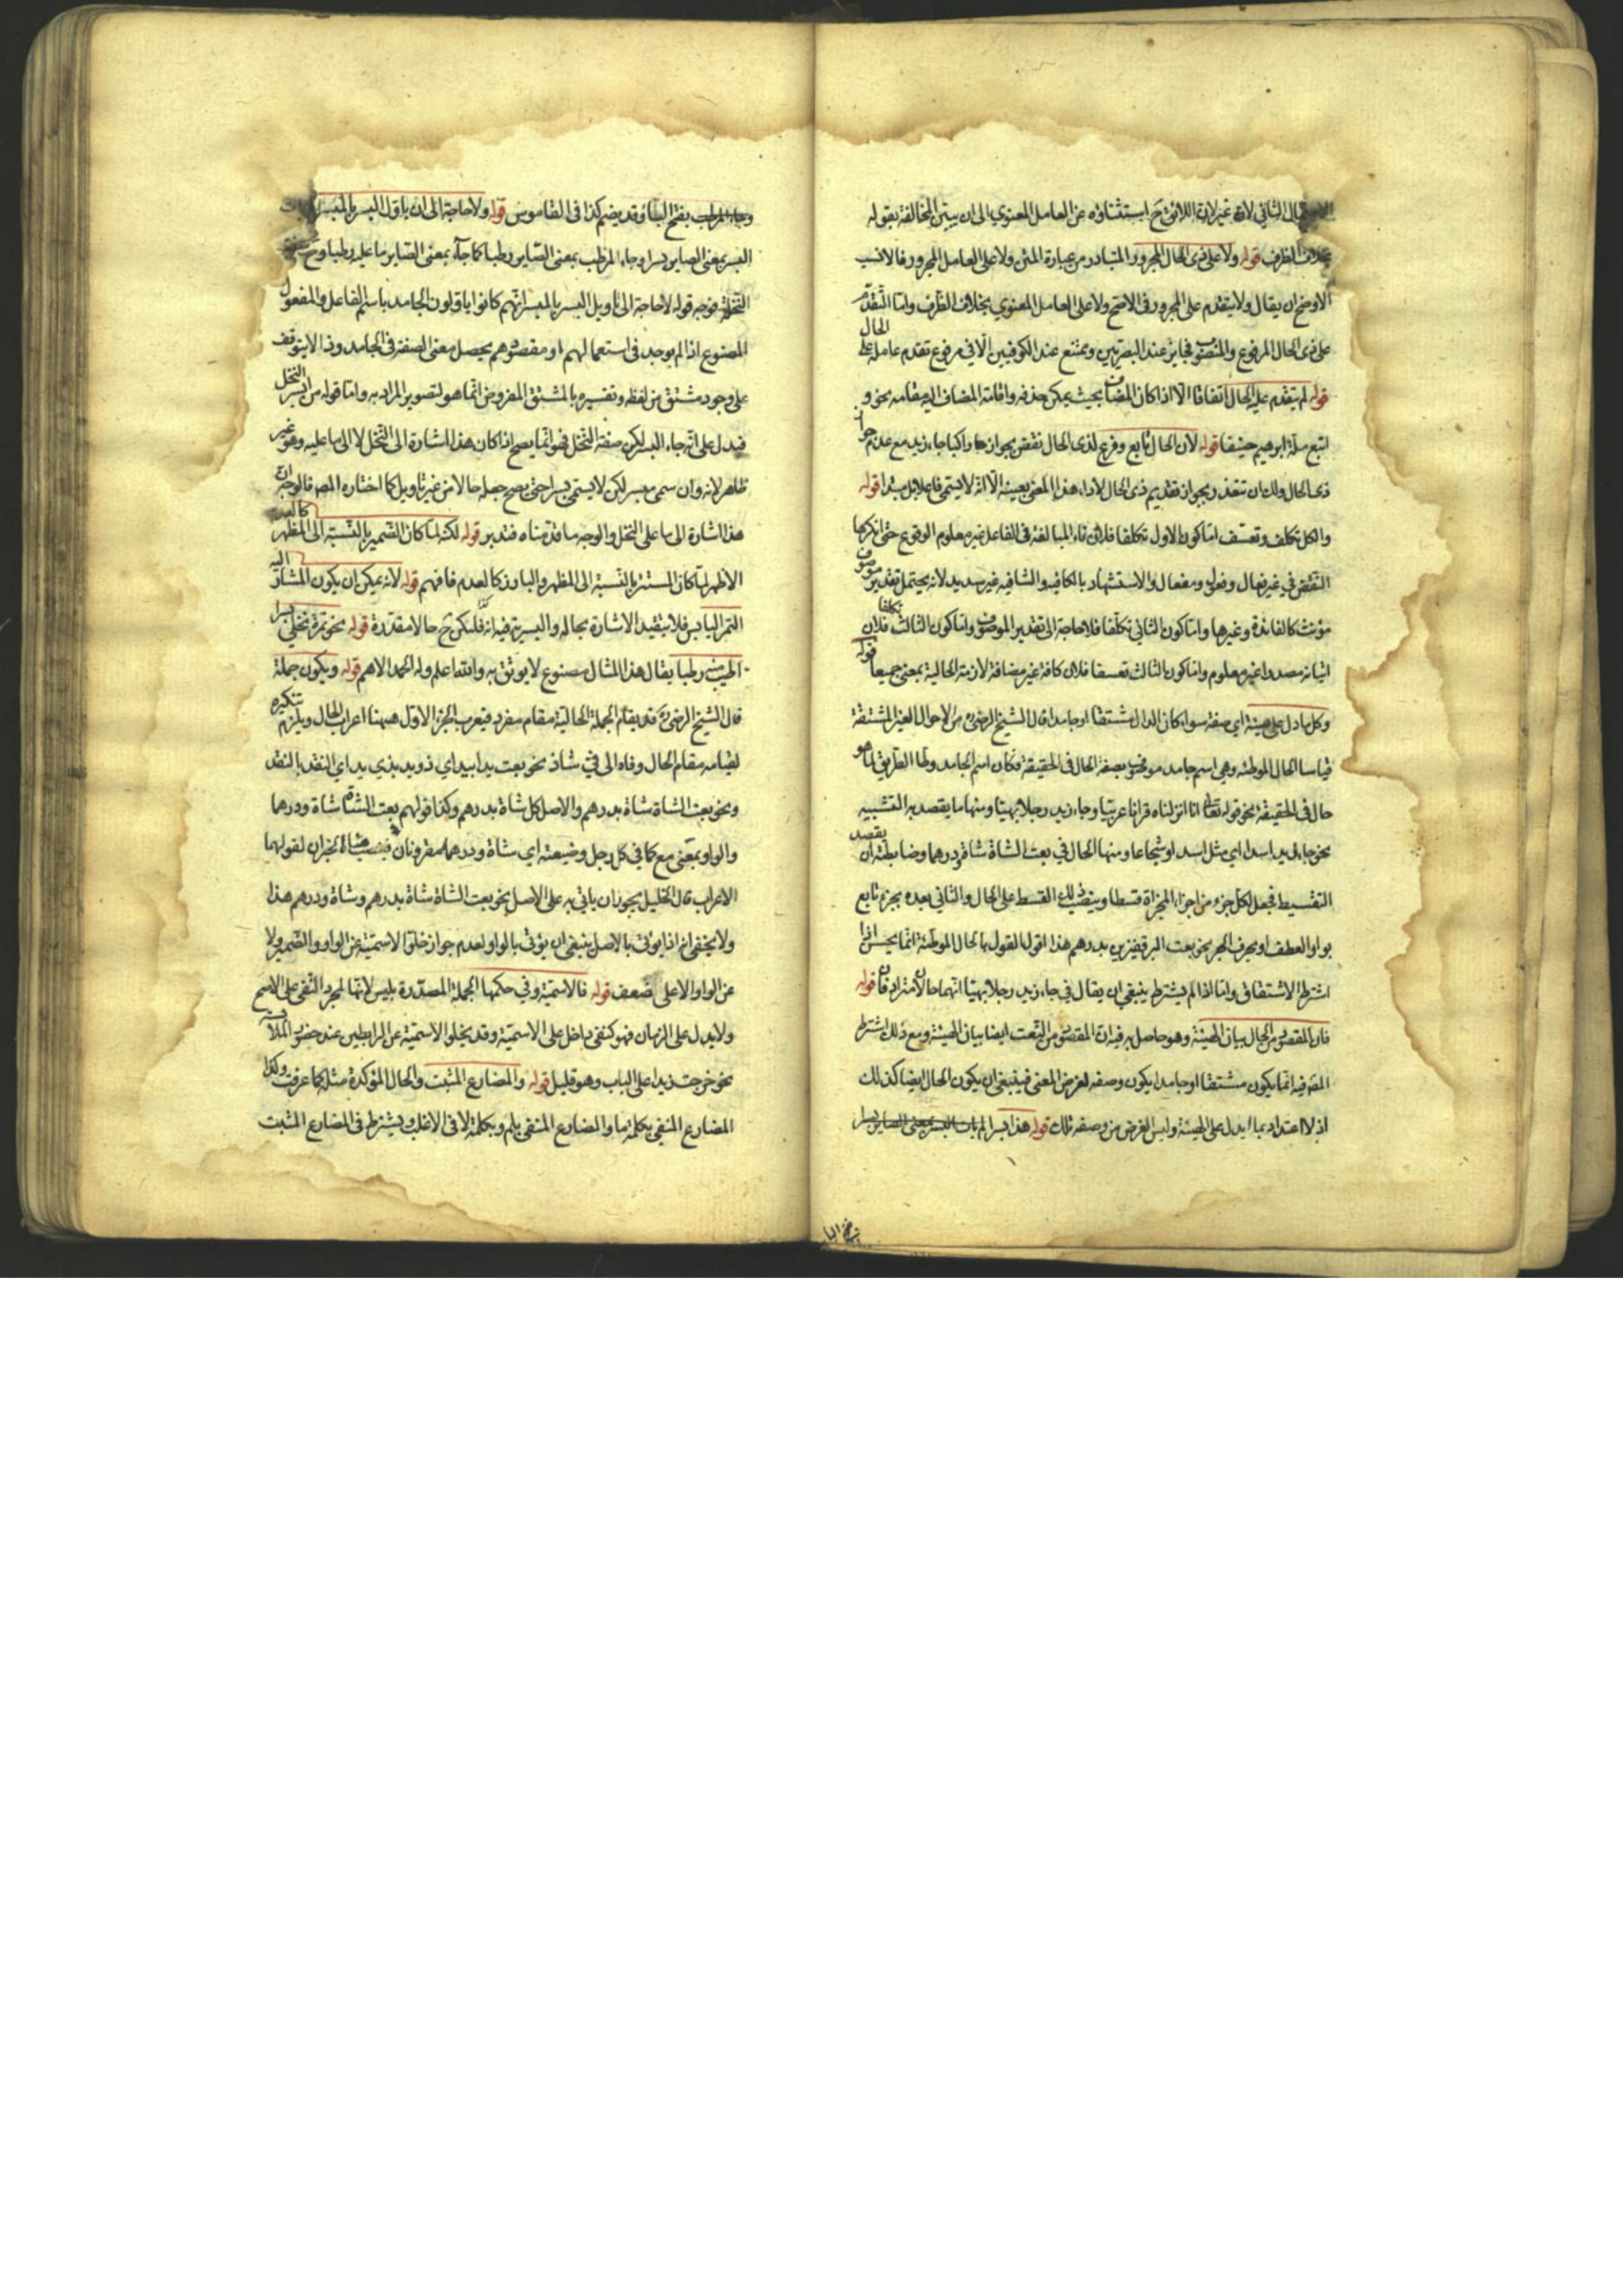 الثاني لان غير لان اللائق ح استثناؤه عن العامل المعنوي الى ان يبين المخالفة بقوله
بخلاف الظرف قوله ولا على ذى الحال المجرور المتبادر من عبارة المتن ولا على العامل المجرور فالانسب
الاوضح ان يقال ولا يتقدم على المجرور فى الاصح ولا على العامل المعنوي بخلاف الظرف واما التقدم
على ذى الحال المرفوع والمنصوب فجايز عند البصريين وممتنع عند الكوفيين الا فى مرفوع تقدم عامله على الحال
قوله لم يتقدم عليه الحال اتفاقا الا اذا كان المضاف بحيث يمكن حذفه واقامة المضاف اليه مقامه نحو و
اتبع ملة ابرهيم حنيفا قوله لان الحال تابع وفرع لذى الحال نقض بجواز جاء راكبا جاء زيد مع عدم جواز
ذى الحال ولك ان تقدر بجواز تقديم ذى الحال لاداء هذا المعنى بعينه الا انه لا يسمى فاعلا بل مبتدا قوله
والكل تكلف وتعسف اما كون الاول تكلفا فلان تاء المبالغة فى الفاعل غير معلوم الوقوع حتى انكرها
النقض في غير فعال وفعول ومفعال والاستشهاد بالكافيه والشافيه غير سديد لانه يحتمل تقدير موصوف
مؤنث كالفائدة وغيرها واما كون الثاني تكلفا فلا حاجة الى تقدير الموصوف واما كون الثالث تكلفا فلان
اتيانه مصدرا غير معلوم واما كون الثالث تعسفا فلان كافة غير مضافة لازمة الحالية بمعنى جميعا قوله
وكل ما دل على هيئة اي صفة سواء كان الدال مشتقا او جامدا قال الشيخ الرضي ره من الاحوال الغير المشتقة
قياسا الحال الموطئه وهي اسم جامد موصوف بصفة هى الحال فى الحقيقة فكان اسم الجامد وطأ الطريق لما هو
حال فى الحقيقة نحو قوله تعالى انا انزلناه قرانا عربيا وجاء زيد رجلا بهيا ومنها ما يقصد به التشبيه
نحو جاء زيد اسدا اي مثل اسد او شجاعا ومنها الحال في بعت الشاة شاة ودرهما وضابطته ان يقصد
التقسيط فجعل لكل جزء من اجزاء المجزاة قسطا وينصب ذلك القسط على الحال والثاني بعده بجزء تابع
بواو العطف او بحرف الجر نحو بعت البر قفيزين بدرهم هذا اقول القول بالحال الموطئة انما يحسن اذا
اشترط الاشتقاق واما اذا لم يشترط ينبغي ان يقال في جاء زيد رجلا بهيا انهما حالان مترادفان قوله
فان المقصود من الحال بيان الهيئة وهو حاصل به فيه ان المقصود من النعت ايضا بيان الهيئة ومع ذلك اشترط
المصه فيه انما يكون مشتقا او جامدا يكون وصفه لغرض المعنى فينبغي ان يكون الحال ايضا كذلك
اذ لا اعتداد بما يدل على الهيئة وليس الغرض من وصفه ذلك قوله هذا بسرا لم يات البسر بمعنى الصاير بسرا
وجاء المرطب بفتح الياء وقد يضم كذا فى القاموس قوله ولا حاجة الى ان ياول البسر بالمبسر
البسر بمعنى الصاير بسرا وجاء المرطب بمعنى الصاير رطبا كما جاء بمعنى الصاير ما عليه رطبا وح
النخلة فوجه قوله لا حاجة الى تاويل البسر بالمبسر انهم كانوا ياولون الجامد باسم الفاعل والمفعول
المصنوع اذا لم يوجد فى استعمالهم او مقصودهم يحصل معنى الصفة فى الجامد وذا لا يتوقف
على وجود مشتق من لفظه وتفسيره بالمشتق المفروض انما هو لتصوير المراد به واما قوله من ابسر النخل
فيدل على انه جاء البسر لكن صفة النخل فهو انما يصح اذا كان هذا اشارة الى النخل لا الى ما عليه وهو غير
ظاهر لانه وان سمى مبسر لكن لا يسمى بسرا حتى يصح جعله حالا من غير تاويل كما اختاره المصه فالوجه ان
هذا اشارة الى ما على النخل والوجه ما قدمناه فتدبر قوله لكنه لما كان الضمير بالنسبة الى المظهر كالعدم
الاظهر لما كان المستتر بالنسبة الى المظهر والبارز كالعدم فافهم قوله لانه يمكن ان يكون المشار اليه
التمر اليابس فلا يتقيد الاشارة بحاله والبسرية فيه انه فلتكن ح حالا مقدرة قوله نحو تمرة نخلي بسرا
اطيب منه رطبا يقال هذا المثال مصنوع لا يوثق به والله اعلم وله الحمد الاهم قوله ويكون جملة
قال الشيخ الرضي ره قد يقام الجملة الحالية مقام مفرد فيعرب الجزء الاول منهما اعراب الحال ويلزم تنكيره
لقيامه مقام الحال وفاه الى في شاذ نحو بعت يدا بيد اي ذو يد بذي يد اي النقد بالنقد
ونحو بعت الشاة شاة بدرهم والاصل كل شاة بدرهم وكذا قولهم بعت الشاة شاة ودرهما
والواو بمعنى مع كما في كل رجل وضيعته اي شاة ودرهما مقرونان فنصب الجزءان لقولهما
الاعراب قال الخليل يجوز ان ياتي به على الاصل نحو بعت الشاة شاة بدرهم وشاة ودرهم هذا
ولا يخفى انه اذا يؤتى بالاصل ينبغي ان يؤتى بالواو لعدم جواز خلو الاسمية عن الواو والضمير ولا
عن الواو الا على ضعف قوله فالاسمية وفي حكمها الجملة المصدرة بليس لانها لمجرد النفي على الاسم
ولا يدل على الزمان فهو كنفى داخل على الاسمية وقد يخلوا الاسمية عن الرابطين عند حضور الملابسة
نحو خرجت زيد على الباب وهو قليل قوله والمضارع المثبت والحال المؤكدة مثله كما عرفت وكذا
المضارع المنفي بكلمة ما والمضارع المنفي بلم وبكلمة لا فى الاغلب ويشترط فى المضارع المثبت